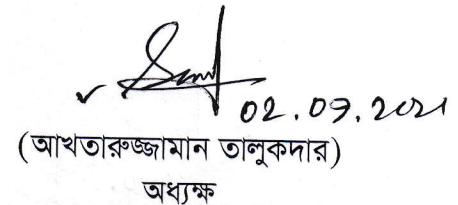 02.09.2021
(আখতারুজ্জামান তালুকদার)
অধ্যক্ষ